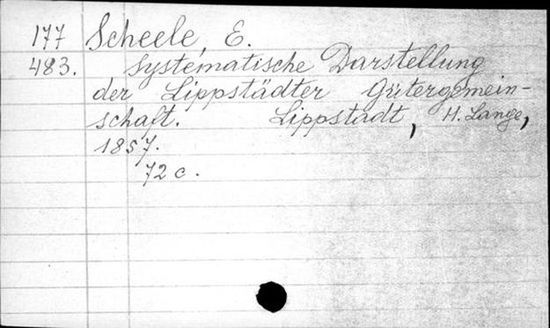 177 Scheele, E.
483. Systematische Darstellung
der Lippstädter Gütergemein-
schaft. Lippstadt, H. Lange,
1857.
72 c.